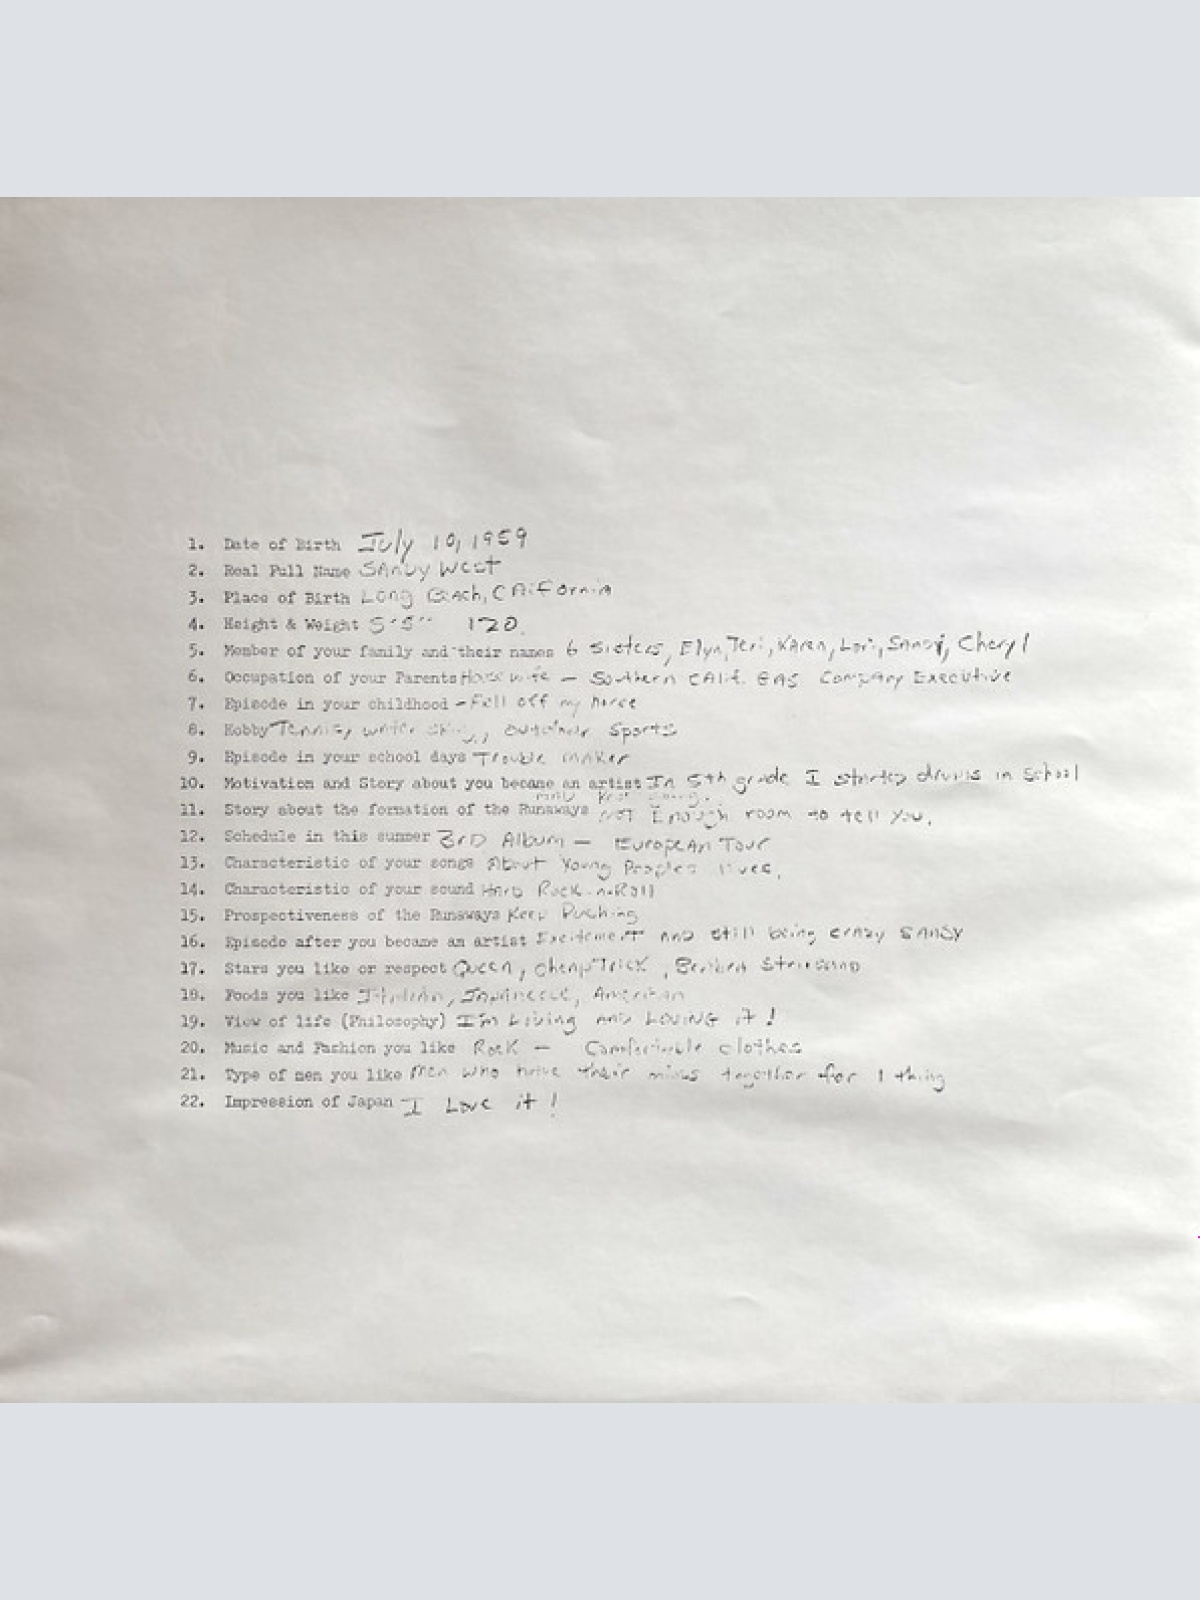 1. Date of Birth July 10, 1959
2. Real Full Name SANDY West
3. Place of Birth Long Beach, CAlifornia
4. Height & Weight 5'5" 120
5. Member of your family and their names 6 sisters, Elyn, Teri, Karen, Lori, Sandy, Cheryl
6. Occupation of your Parents Housewife — Southern CAlif. GAS Company Executive
7. Episode in your childhood - Fell off my horse
8. Hobby Tennis, water skiing, outdoor Sports
9. Episode in your school days Trouble mAKer
10. Motivation and Story about you became an artist In 5th grade I started drums in School
and kept going.
11. Story about the formation of the Runaways NOT Enough room to tell you.
12. Schedule in this summer 3rD Album — EuropeAn Tour
13. Characteristic of your songs About Young Peoples lives.
14. Characteristic of your sound HArD Rock-n-Roll
15. Prospectiveness of the Runaways Keep Pushing
16. Episode after you became an artist Excitement AND still being crazy SANDY
17. Stars you like or respect Queen, CheapTrick, Barbra Streisand
18. Foods you like Italian, Japaneese, American
19. View of life (Philosophy) I'm Living AND LOVING it!
20. Music and Fashion you like Rock — Comfortable clothes
21. Type of men you like Men who have their minds together for 1 thing
22. Impression of Japan - I Love it!